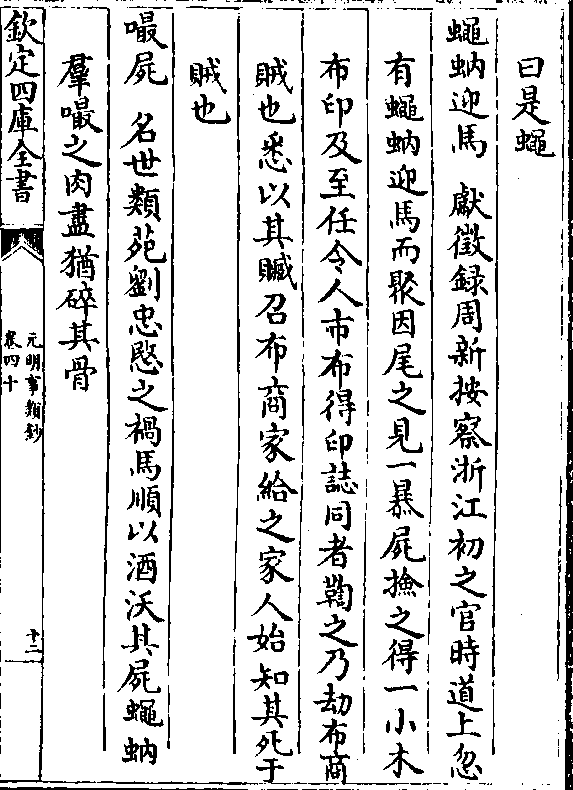 曰是蠅
蠅蚋迎馬 獻徵録周新按察浙江初之官時道上忽
有蠅蚋迎馬而聚因尾之見一暴屍撿之得一小木
布印及至任令人市布得印誌同者鞫之乃刼布商
賊也悉以其贓召布商家給之家人始知其死于
賊也
嘬屍 名世類苑劉忠愍之禍馬順以酒沃其屍蠅蚋
羣嘬之肉盡猶碎其骨
欽定四庫全書
元明事類鈔
卷四十
十二